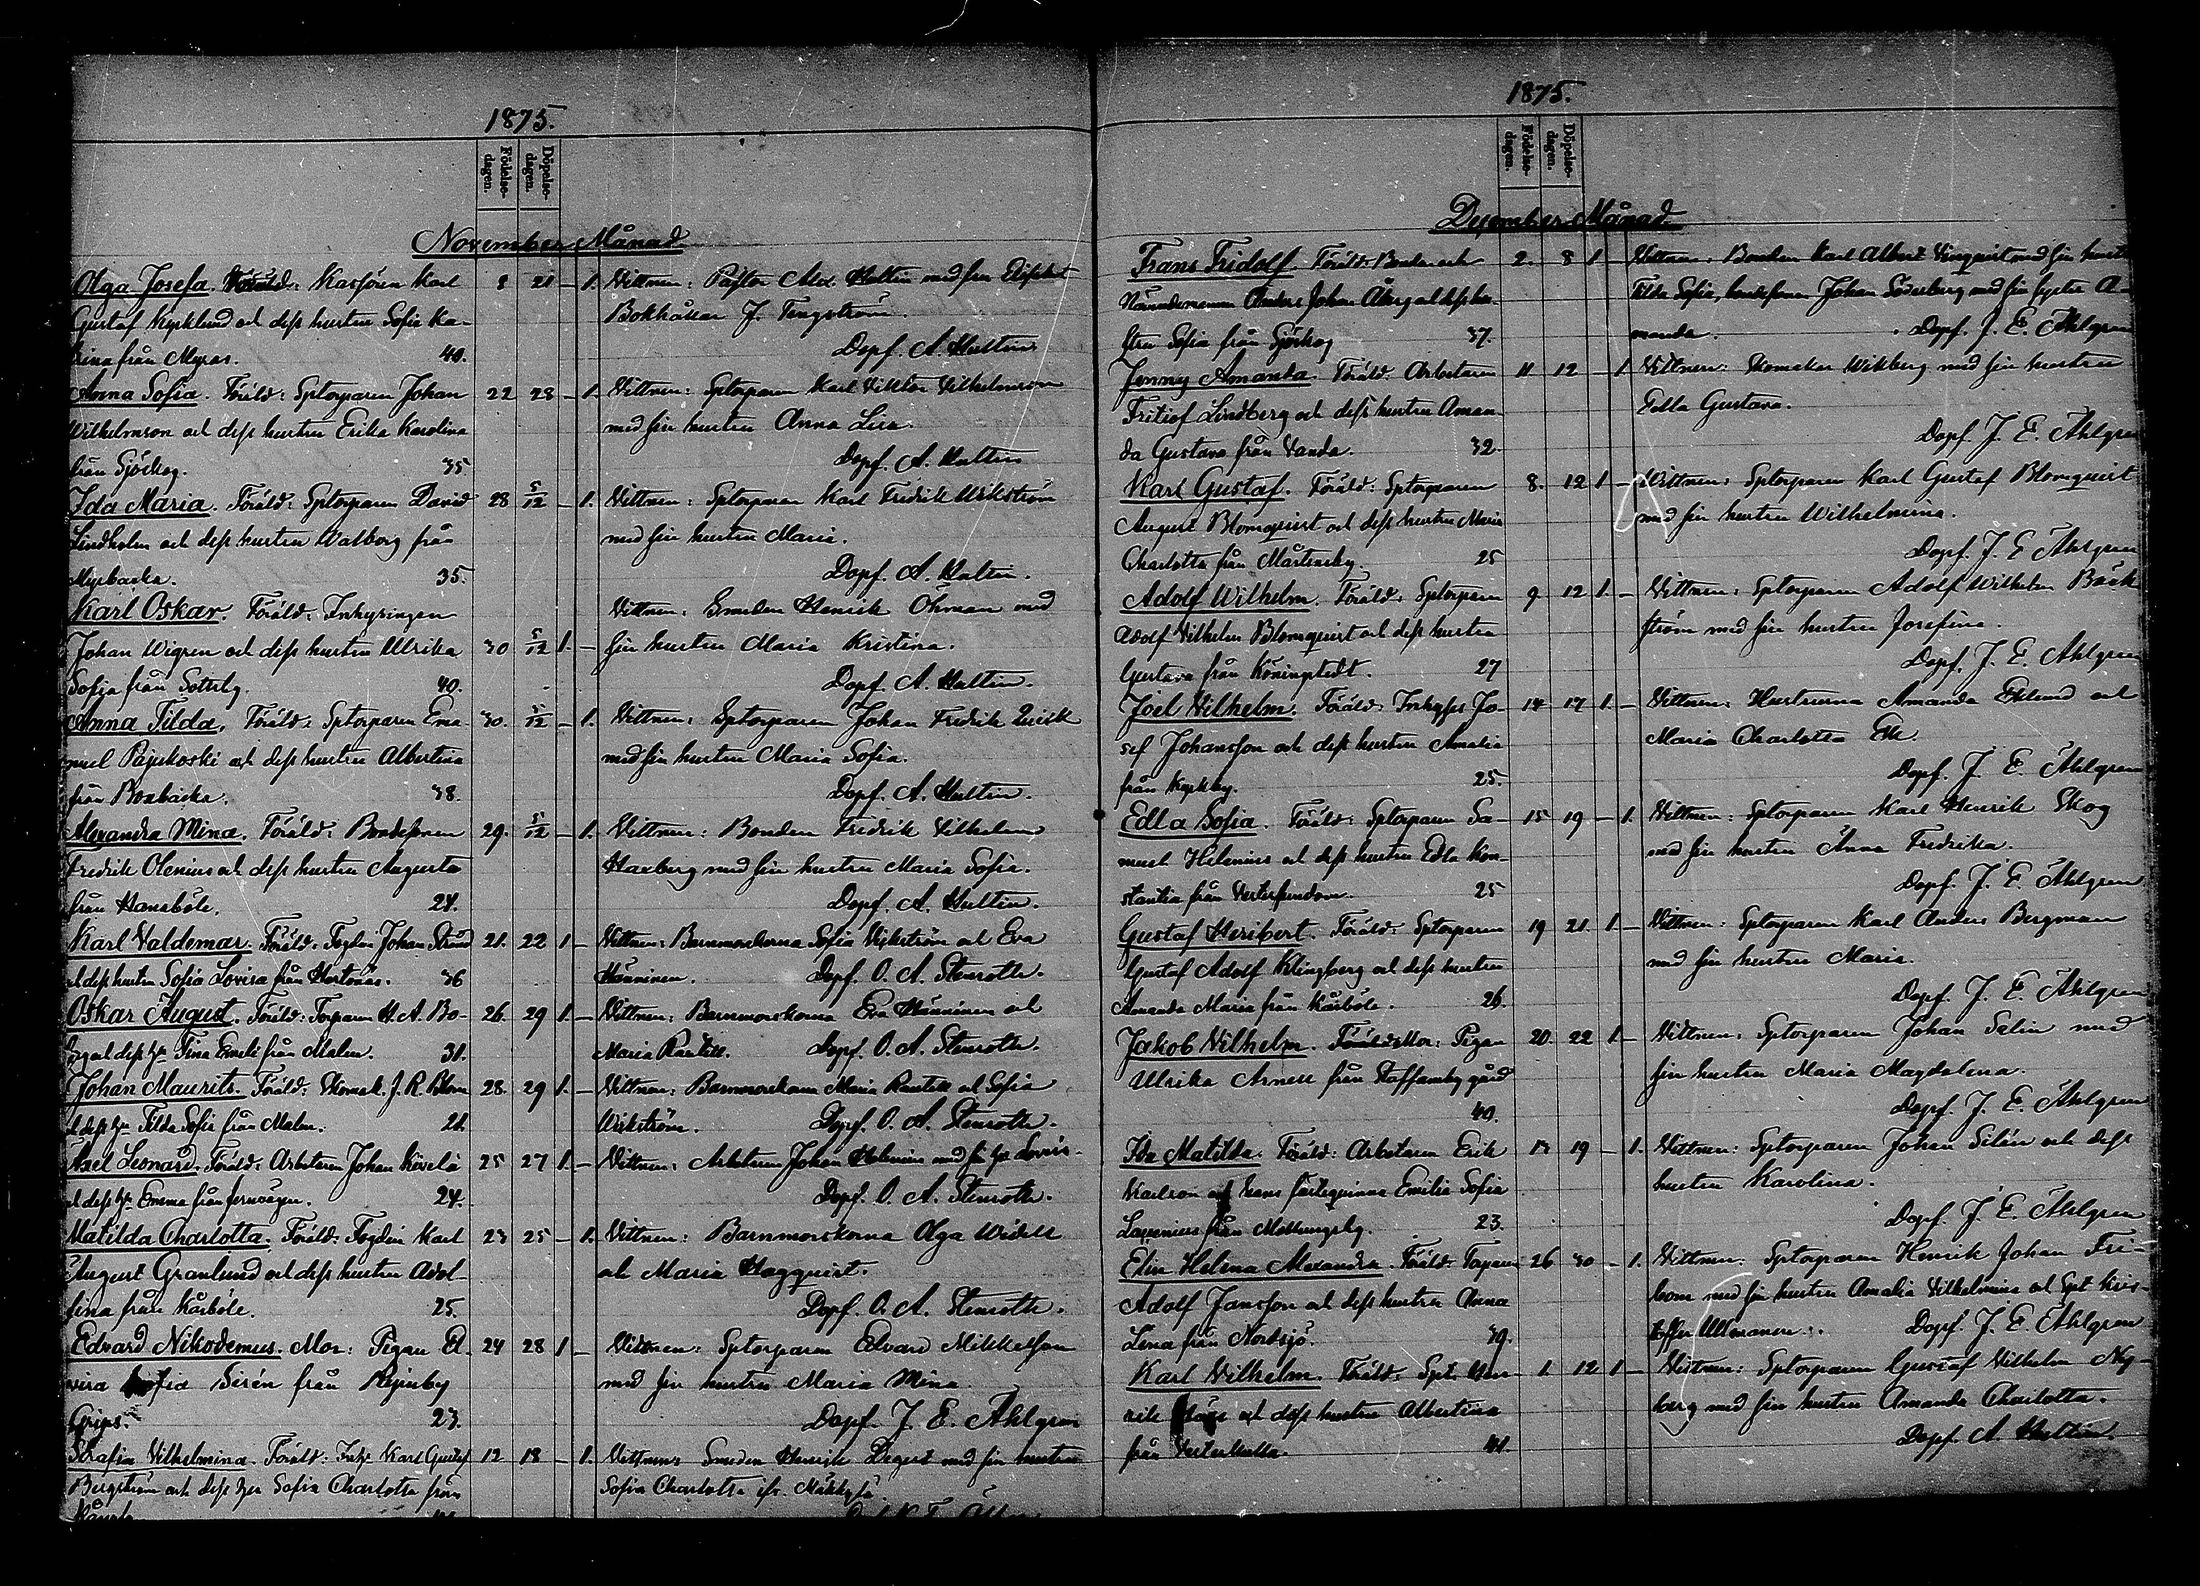 1875.
Födelse-dagen.
Döpelse-dagen.
November Månad
Olga Josefa. Föräld: Kassören Karl 8 21 – 1. Vittnen: Pastor Alex. Hultin med sin
Gustaf Kyrklund och dess hustru Sofia Ka- Bokhållar J. Tengström.
rina från Myras. 40. Dopf. A. Hultin
Anna Sofia. Föräld: Sptorparen Johan 22 28 – 1. Vittnen: Sptorparen Karl Viktor Vilhelmsson
Wilhelmson och dess hustru Erika Karolina med sin hustru Anna Lisa.
från Sjöskog. 35 Dopf. A. Hultin
Ida Maria. Föräld: Sptorparen David 28 5/12 – 1. Vittnen: Sptorparen Karl Fredrik Wikström
Lindholm och dess hustru Walborg från med sin hustru Maria.
Myrbacka. 35. Dopf. A. Hultin.
Karl Oskar. Föräld: Inhysingen Vittnen: Smeden Henrik Öhman med
Johan Wigren och dess hustru Ulrika 30 5/12 1. – sin hustru Maria Kristina.
Sofia från Sottby. 40. Dopf. A. Hultin.
Anna Tilda. Föräld: Sptorparen Ema- 30. 5/12 – 1. Vittnen: Sptorparen Johan Fredrik Quick
nuel Pajukoski och dess hustru Albertina med sin hustru Maria Sofia.
från Boxbacka. 38. Dopf. A. Hultin.
Alexandra Mina. Föräld: Bondesonen 29. 5/12 – 1. Vittnen: Bonden Fredrik Vilhelm
Fredrik Olenius och dess hustru Augusta Haxberg med sin hustru Maria Sofia.
från Hanaböle. 24. Dopf. A. Hultin.
Karl Valdemar. Föräld: Fogden Johan Strand 21. 22 1 – Vittnen: Barnmorskorna Sofia Wikström och Eva
och dess hustru Sofia Lovisa från Hertonäs. 36 Hänninen. Dopf. O. A. Stenroth.
Oskar August. Föräld: Torparen H. A. Bo- 26. 29 1. – Vittnen: Barnmorskorna Eva Hänninen och
och dess hu Tina Emili från Malm. 31. Maria Rautell. Dopf. O. A. Stenroth.
Johan Maurits. Föräld: Skomak. J. R. Blom 28. 29 1. – Vittnen: Barnmorskorna Maria Rautell och Sofia
och dess hu Tilda Sofia från Malm. 21. Wikström. Dopf. O. A. Stenroth.
Axel Leonard. Föräld: Arbetaren Johan Kivelä 25 27 1. – Vittnen: Arbetaren Johan Holmin med sin hu Lovisa.
och dess hu Emma från Jernvägen. 24. Dopf. O. A. Stenroth.
Matilda Charlotta. Föräld: Fogden Karl 23 25 – 1. Vittnen: Barnmorskorna Olga Widell
August Granlund och dess hustru Adol- och Maria Hagqvist.
fina från Kårböle. 25. Dopf. O. A. Stenroth.
Edvard Nikodemus. Mor: Pigan El- 24 28 1 – Vittnen: Sptorparen Edvard Mikkelsson
vira Sofia Sirén från med sin hustru Maria Mina.
Grips. 23. Dopf. J. E. Ahlgren
Serafina Vilhelmina. Föräld: Inh. Karl Gustaf 12 18 – 1. Vittnen: Smeden Henrik Degert med sin hustru
Bergström och dess hu Sofia Charlotta från Sofia Charlotta
1875.
Födelse-dagen.
Döpelse-dagen.
December Månad
Frans Fridolf. Föräld: Bonden och 2. 8 1 – Vittnen: Bonden Karl Albert med sin hustru
Nämndemannen Anders Johan Åberg och dess hu- Tilda Sofia, bondesonen Johan Söderberg med sin syster A-
stru Sofia från Sjöskog 37. manda. Dopf. J. E. Ahlgren
Jenny Amanda. Föräld: Arbetaren 11 12 – 1. Vittnen: Skomakar Wikberg med sin hustru
Fritiof Lindberg och dess hustru Aman- Edla Gustava.
da Gustava från Vanda. 32 Dopf. J. E. Ahlgren
Karl Gustaf. Föräld: Sptorparen 8. 12 1 – Vittnen: Sptorparen Karl Gustaf Blomquist
August Blomquist och dess hustru Maria med sin hustru Wilhelmina.
Charlotta från Mårtensby. 25 Dopf. J. E. Ahlgren
Adolf Wilhelm. Föräld: Sptorparen 9 12 1. – Vittnen: Sptorparen Adolf Wilhelm Bäck-
Adolf Vilhelm Blomquist och dess hustru ström med sin hustru Josefina.
Gustava från Köningstedt. 27 Dopf. J. E. Ahlgren
Joel Vilhelm. Föräld: Inhyses Jo- 14 17 1. – Vittnen: Hustrurna Amanda Eklund och
sef Johansson och dess hustru Amalia Maria Charlotta Ek
från Kyrkby. 25. Dopf. J. E. Ahlgren
Edla Sofia. Föräld: Sptorparen Sa- 15 19 – 1. Vittnen: Sptorparen Karl Henrik Skog
muel Helenius och dess hustru Edla Kon- med sin hustru Anna Fredrika.
stantia från Vesterkundom. 25 Dopf. J. E. Ahlgren
Gustaf Heribert. Föräld: Sptorparen 19 21 1. – Vittnen: Sptorparen Karl Anders Bergman
Gustaf Adolf Klingberg och dess hustru med sin hustru Maria.
Amanda Maria från Kårböle. 26. Dopf. J. E. Ahlgren
Jakob Vilhelm. Mor: Pigan 20 22 1 – Vittnen: Sptorparen Johan Salin med
Ulrika Arnell från Staffansby gård sin hustru Maria Magdalena.
40. Dopf. J. E. Ahlgren
Ida Matilda. Föräld: Arbetaren Erik 13 19 – 1. Vittnen: Sptorparen Johan Silén och dess
Karlson och hans fästeqvinna Emilia Sofia hustru Karolina.
från Mellungsby. 23. Dopf. J. E. Ahlgren
Elin Helena Alexandra. Föräld: Torparen 26 30 – 1. Vittnen: Sptorparen Henrik Johan Fri-
Adolf Jansson och dess hustru Anna bom med sin hustru Amalia Vilhelmina och Spt Kris-
Lena från Nordsjö. 39. toffer Ullmanen. Dopf. J. E. Ahlgren
Karl Vilhelm. Föräld: Spt. Hen- 1 12 1 – Vittnen: Sptorparen Gustaf Vilhelm Ny-
rik och dess hustru Albertina berg med sin hustru Amanda Charlotta.
från Vesterkulla. 41. Dopf. A. Hultin.